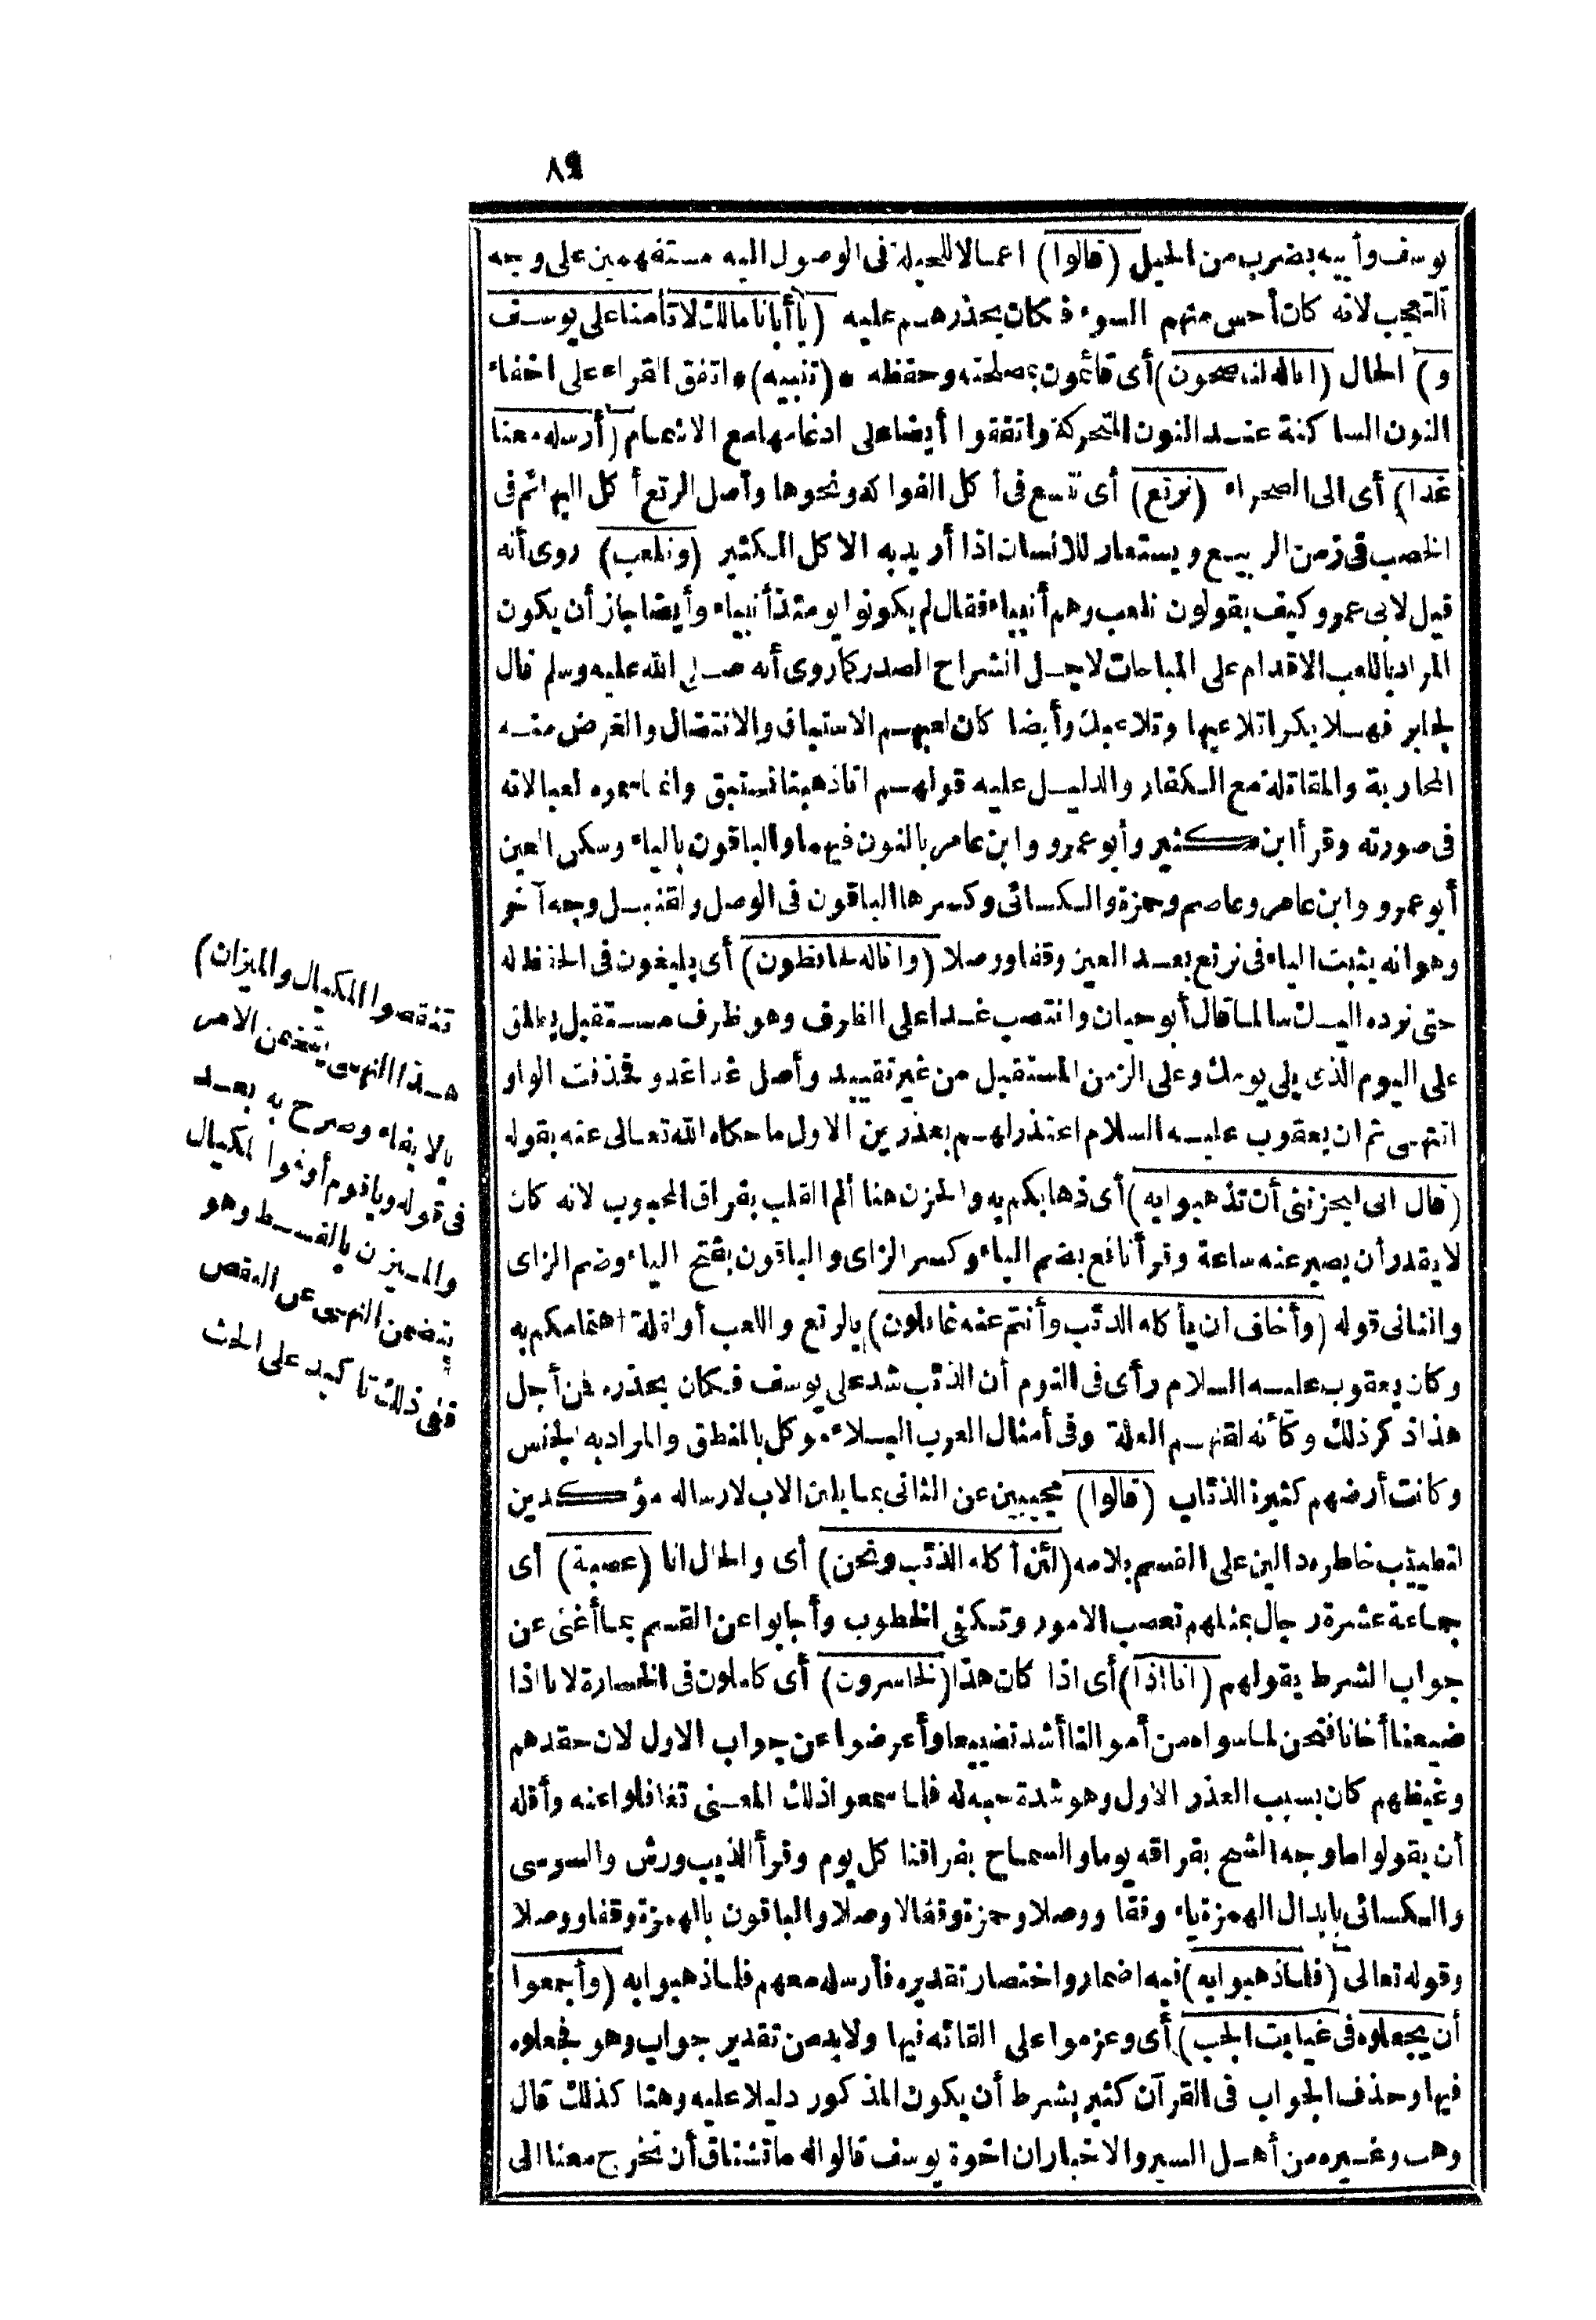 ٨٩
يوسف وأبيه بضرب من الحيل (قالوا) اعمالا للحيلة فى الوصول اليه مستفهمين على وجه
التعجب لانه كان أحس منهم السوء فكان يحذرهم عليه (يا أبانا مالك لا تأمنا على يوسف
و) الحال (انا له لناصحون) أى قائمون بمصلحته وحفظه * (تنبيه) * اتفق القراء على اخفاء
النون الساكنة عند النون المتحركة واتفقوا أيضا على ادغامها مع الاشمام (أرسله معنا
غدا) أى الى الصحراء (نرتع) أى نتسع فى أكل الفواكه ونحوها وأصل الرتع أكل البهائم فى
الخصب فى زمن الربيع ويستعار للانسان اذا أريد به الاكل الكثير (ونلعب) روى أنه
قيل لابى عمرو كيف يقولون نلعب وهم أنبياء فقال لم يكونوا يومئذ أنبياء وأيضا جاز أن يكون
المراد باللعب الاقدام على المباحات لاجل انشراح الصدر كما روى أنه صلى الله عليه وسلم قال
لجابر فهلا بكرا تلاعبها وتلاعبك وأيضا كان لعبهم الاستباق والانتضال والغرض منه
المحاربة والمقاتلة مع الكفار والدليل عليه قولهم انا ذهبنا نستبق وانما سموه لعبا لانه
فى صورته وقرأ ابن كثير وأبو عمرو وابن عامر بالنون فيهما والباقون بالياء وسكن العين
أبو عمرو وابن عامر وعاصم وحمزة والكسائى وكسرها الباقون فى الوصل ولقنبل وجه آخر
وهو انه يثبت الياء فى نرتع بعد العين وقفا ووصلا (وانا له لحافظون) أى بليغون فى الحفظ له
حتى نرده اليك سالما قال أبو حيان وانتصب غدا على الظرف وهو ظرف مستقبل يطلق
على اليوم الذى يلى يومك وعلى الزمن المستقبل من غير تقييد وأصل غدا غدو فحذفت الواو
انتهى ثم ان يعقوب عليه السلام اعتذر لهم بعذرين الاول ما حكاه الله تعالى عنه بقوله
(قال انى ليحزننى أن تذهبوا به) أى ذهابكم به والحزن هنا ألم القلب بفراق المحبوب لانه كان
لا يقدر أن يصبر عنه ساعة وقرأ نافع بضم الياء وكسر الزاى والباقون بفتح الياء وضم الزاى
والثانى قوله (وأخاف أن يأكله الذئب وأنتم عنه غافلون) بالرتع واللعب أو لقلة اهتمامكم به
وكان يعقوب عليه السلام رأى فى النوم أن الذئب شد على يوسف فكان يحذره فمن أجل
هذا ذكر ذلك وكأنه لقنهم العلة وفى أمثال العرب البلاء موكل بالمنطق والمراد به الجنس
وكانت أرضهم كثيرة الذئاب (قالوا) مجيبين عن الثانى بما يلين الاب لارساله مؤكدين
لتطييب خاطره دالين على القسم بلامه (لئن أكله الذئب ونحن) أى والحال انا (عصبة) أى
جماعة عشرة رجال بمثلهم تعصب الامور وتكفى الخطوب وأجابوا عن القسم بما أغنى عن
جواب الشرط بقولهم (انا اذا) أى اذا كان هذا (لخاسرون) أى كاملون فى الخسارة لانا اذا
ضيعنا أخانا فنحن لما سواه من أموالنا أشد تضييعا وأعرضوا عن جواب الاول لان حقدهم
وغيظهم كان بسبب العذر الاول وهو شدة حبه له فلما سمعوا ذلك المعنى تغافلوا عنه وأقله
أن يقولوا ما وجه الشح بفراقه يوما والسماح بفراقنا كل يوم وقرأ الذيب ورش والسوسى
والكسائى بابدال الهمزة ياء وقفا ووصلا وحمزة وقفا لا وصلا والباقون بالهمزة وقفا ووصلا
وقوله تعالى (فلما ذهبوا به) فيه اضمار واختصار تقديره فأرسله معهم فلما ذهبوا به (وأجمعوا
أن يجعلوه فى غيابت الجب) أى وعزموا على القائه فيها ولا بد من تقدير جواب وهو فجعلوه
فيها وحذف الجواب فى القرآن كثير بشرط أن يكون المذكور دليلا عليه وهنا كذلك قال
وهب وغيره من أهل السير والاخبار ان اخوة يوسف قالوا له ما تشتاق أن تخرج معنا الى
تنقصوا المكيال والميزان)
هذا النهى يتضمن الامر
بالايفاء وصرح به بعد
فى قوله ويا قوم أوفوا المكيال
والميزن بالقسط وهو
يتضمن النهى عن النقص
ففى ذلك تاكيد على الحث